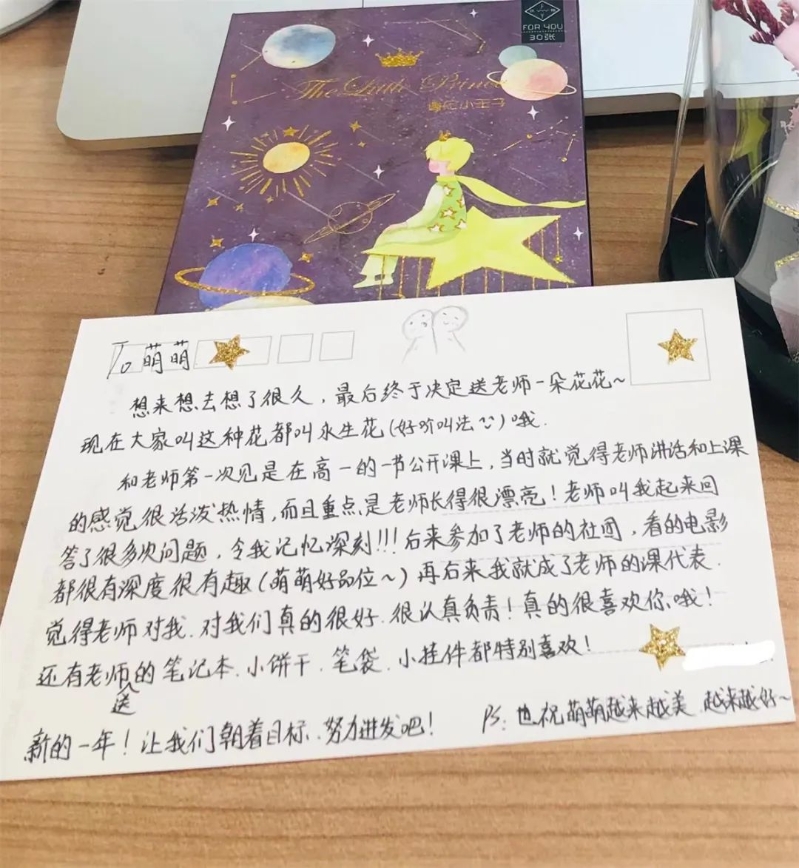 FOR YOU
30张
The Little Prince
小王子
To 萌萌
想来想去想了很久，最后终于决定送老师一朵花花~
现在大家叫这种花都叫永生花(好听叫法)哦.
和老师第一次见是在高一的一节公开课上，当时就觉得老师讲话和上课
的感觉很活泼热情，而且重点是老师长得很漂亮！老师叫我起来回
答了很多次问题，令我记忆深刻!!!后来参加了老师的社团，看的电影
都很有深度很有趣(萌萌好品位~)再后来我就成了老师的课代表.
觉得老师对我.对我们真的很好.很认真负责！真的很喜欢你哦！
还有老师送的笔记本.小饼干.笔袋.小挂件都特别喜欢！
新的一年！让我们朝着目标.努力进发吧！ PS：也祝萌萌越来越美 越来越好~